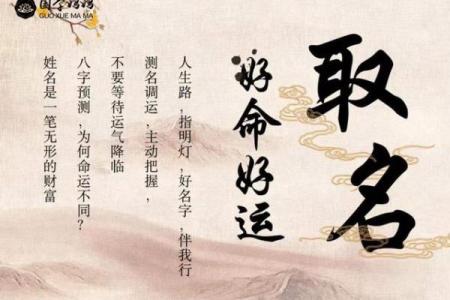 国学妈妈
GUO XUE MA MA
取名
好命好运
人生路,指明灯,好名字,伴我行
测名调运,主动把握,
不要等待运气降临
八字预测,为何命运不同?
姓名是一笔无形的财富